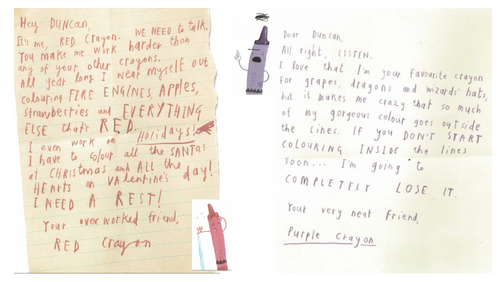 Hey DUNCAN,
It's me, RED Crayon. WE NEED to talk.
You make me work harder than
any of your other crayons.
All year long I wear myself out
colouring FIRE ENGINES, Apples,
Strawberries and EVERYTHING
ELSE that's RED.
I even work on Holidays!
I have to colour all the SANTAS
at CHristmas and ALL the
HEARTS on VAlentine's day!
I NEED A REST!
Your overworked friend,
RED Crayon
Dear Duncan,
All right, LISTEN.
I love that I'm your favourite crayon
for grapes, dragons and wizards' hats,
but it makes me crazy that so much
of my gorgeous colour goes outside
the lines. IF you DON'T START
COLOURING INSIDE the lines
soon... I'm going to
COMPLETELY LOSE IT.
Your very neat friend,
Purple Crayon